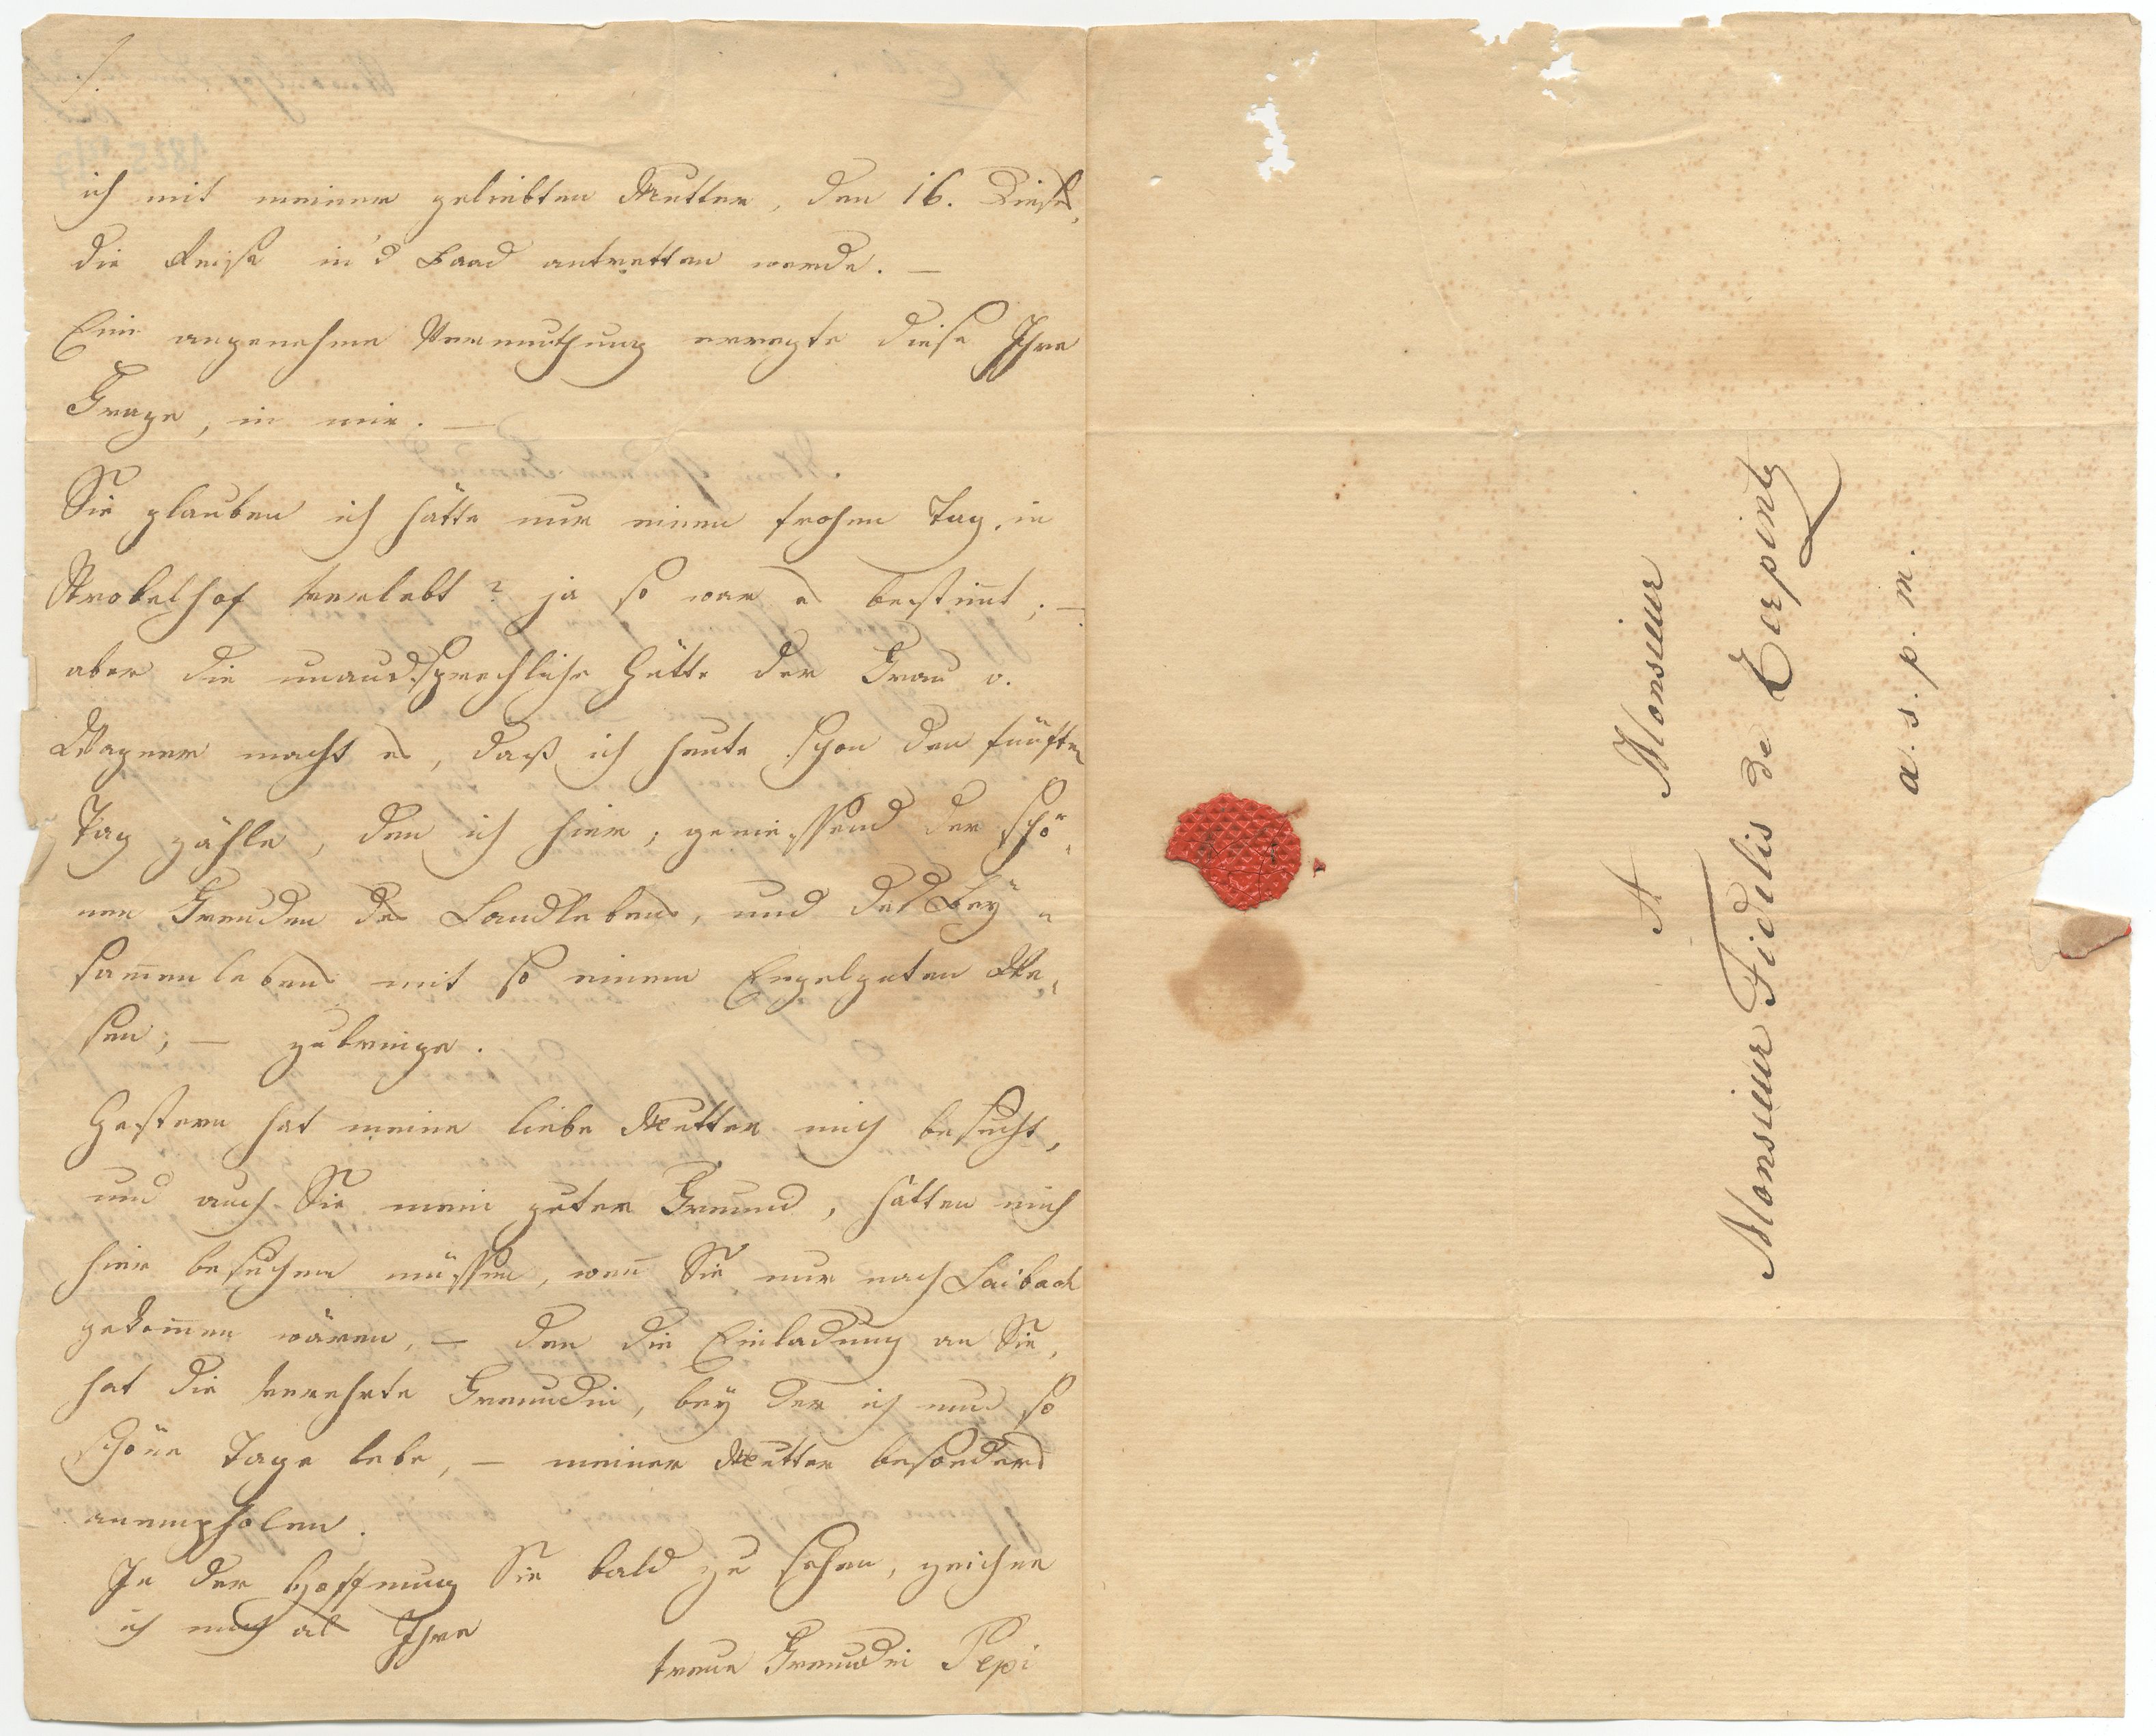 ich mit meiner geliebten Mutter, den 16. Dieß,
die Reise in's Baad antretten werde. —
Eine angenehme Vermuthung erregte diese Ihre
Frage, in mir. —
Sie glauben ich hätte nur einen frohen Tag, in
Strobelhof verlebt? ja so war es bestimt; —
aber die unaussprechliche Gütte der Frau v.
Wagner macht es, daß ich heute schon den fünften
Tag zähle, den ich hier, geniessend der schö-
nen Freuden des Landlebens, und des Bey-
samenlebens mit so einem Engelguten We-
sen; — zubringe.
Gestern hat meine liebe Mutter mich besucht,
und auch Sie mein guter Freund, hätten mich
hier besuchen müssen, wen Sie nur nach Laibach
gekomen wären, — den die Einladung an Sie,
hat die verehrte Freundin, bey der ich nun so
schöne Tage lebe, — meiner Mutter besonders
anempholen.
In der Hoffnung Sie bald zu sehen, zeichne
ich mich als Ihre
treue Freundin Pepi
A Monsieur
Monsieur Fidelis de Terpintz
a. s. p. m.